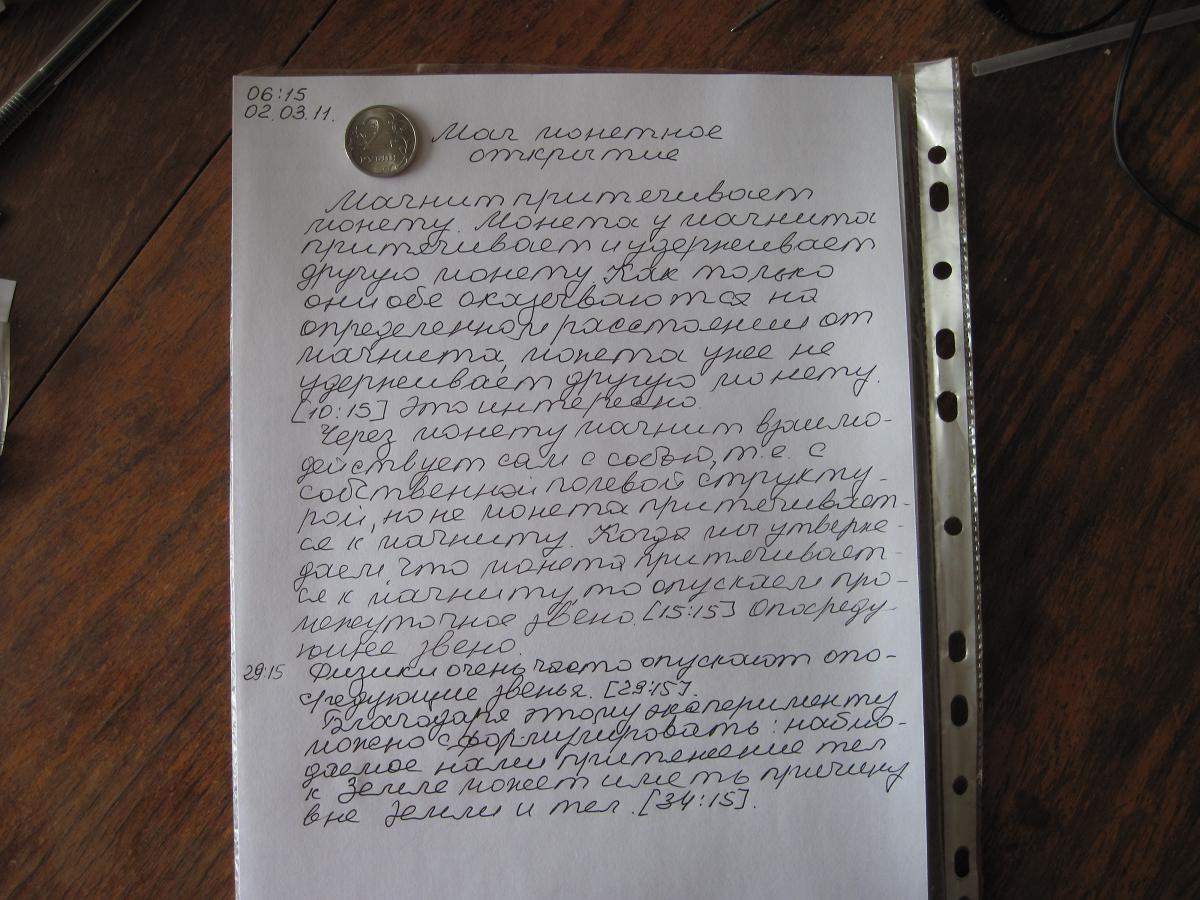 06:15
02.03.11.
2
РУБЛЯ
Маг монетное
открытие
Магнит притягивает
монету. Монета у магнита
притягивает и удерживает
другую монету. Как только
они обе оказываются на
определенном расстоянии от
магнита, монета уже не
удерживает другую монету.
[10:15] Это интересно.
Через монету магнит взаимо-
действует сам с собою, т.е. с
собственной полевой структу-
рой, но не монета притягивает-
ся к магниту. Когда мы утверж-
даем, что монета притягивает-
ся к магниту, то опускаем про-
межуточное звено. [15:15] Опосреду-
ющее звено.
29:15 Физики очень часто опускают опо-
средующие звенья. [29:15].
Благодаря этому эксперименту
можно сформулировать: наблю-
даемое нами притяжение тел
к Земле может иметь причину
вне Земли и тел. [34:15].